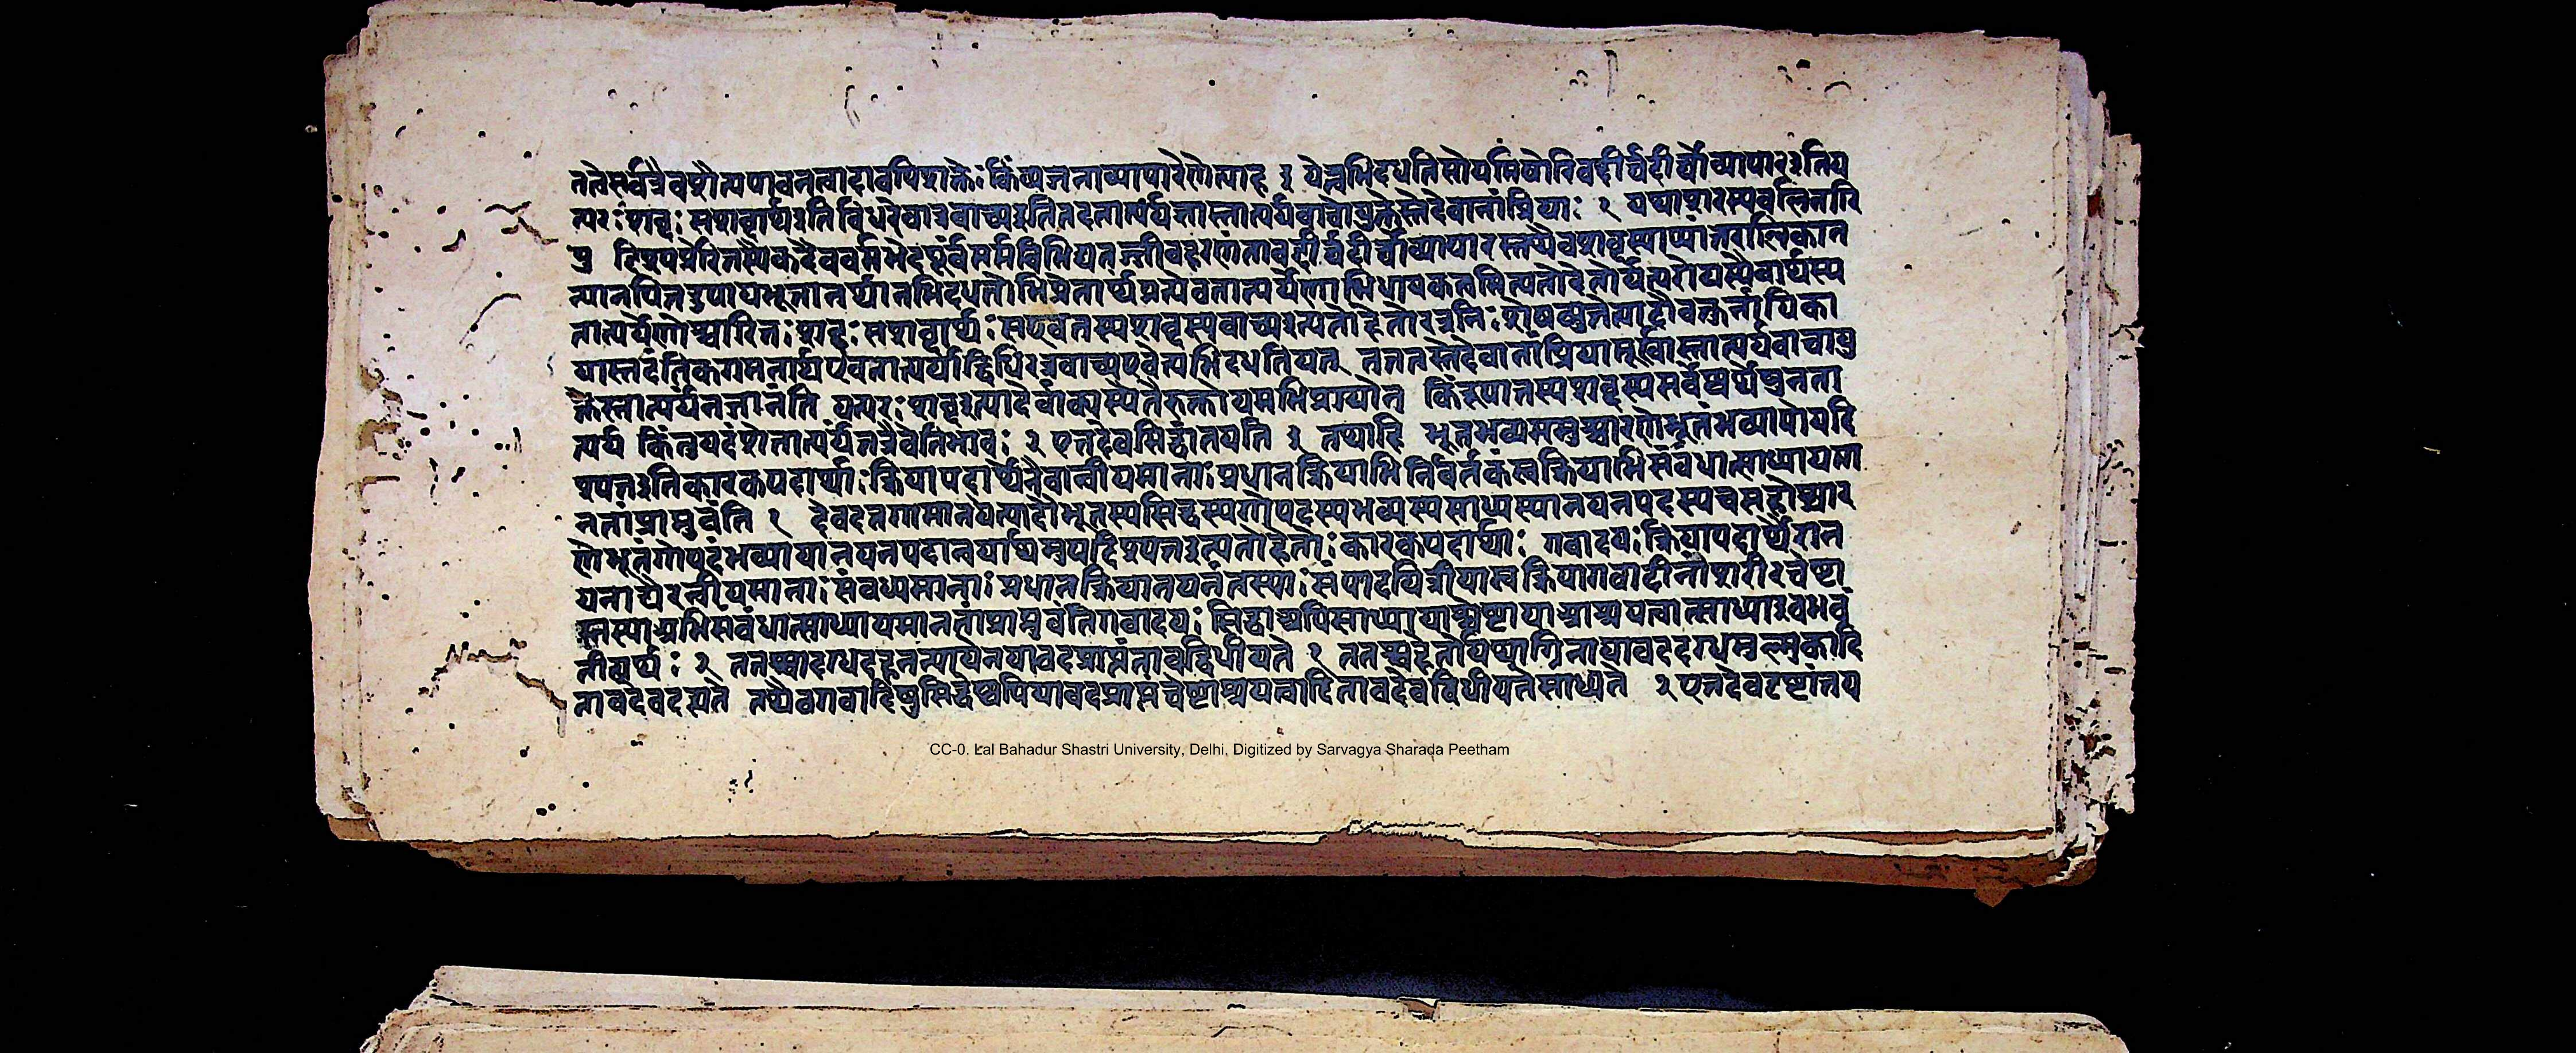 ततेसर्वत्रैवशैत्यपावनत्वादावपिशक्तेः किंव्यञ्जनाव्यापारेणेत्याह ३ येत्वभिदधतिसोयमिषोरिवदीर्घदीर्घोव्यापारइतिय
त्परःशब्दः सशब्दार्थइतिविधिरेवात्रवाच्यइतितदतात्पर्यज्ञास्तात्पर्यवाचोयुक्तेस्तेदेवानांप्रियाः १ यथाशरस्यबलिनारि
पु
त्यानपितदुपायभूतानर्थानभिदधतोभिप्रेतार्थप्रत्येवतात्पर्येणाभिधायकत्वमित्यतोहेतोर्यत्परोयस्यैवार्थस्य
तात्पर्येणोच्चारितः शब्दः सशब्दार्थः सएवतस्यशब्दस्यवाच्यइत्यतोहेतोरत्रनिःशेषच्युतेत्यादौवक्तुर्नायिका
यास्तदंतिकगमनार्थएवतात्पर्याद्विधिरत्रवाच्यएवेत्यभिदधतियत्तु तन्नतस्तेदेवानांप्रियामूर्खास्तात्पर्यवाचोयु
क्तेस्तात्पर्यंनजानंति यत्परः शब्दइत्यादेर्वाक्यस्यैतैरुक्तोयमभिप्रायोन किंरूपातस्यशब्दस्यसर्वेष्वर्थेषुनता
त्पर्यं किंतुयदंशेतात्पर्यंतत्रैवेतिभावः २ एतदेवसिद्धांतयति ३ तथाहि भूतभव्यसमुच्चारणेभूतंभव्यायोपदि
श्यतइतिकारकपदार्थाः क्रियापदार्थेनैवान्वीयमानाः प्रधानक्रियाभिनिर्वर्तकस्वक्रियाभिसंबंधात्साध्यायमा
नतांप्राप्नुवंति १ देवदत्तगामानयेत्यादौभूतस्यसिद्धस्यगोपदस्यभव्यस्यसाध्यस्यानयनपदस्यचसहोच्चार
णेभूतंगोपदंभव्यायानयनपदानयार्थमुपदिश्यतइत्यतोहेतोः कारकपदार्थाः गवादयः क्रियापदार्थैरान
यनाद्यैरन्वीयमानाः संबध्यमानाः प्रधानक्रियानयनंतस्याः संपादयित्रीयास्वक्रियागवादीनांशरीरचेष्टा
स्तस्याअभिसंबंधात्साध्यायमानतांप्राप्नुवंतिगवादयः सिद्धाअपिसाध्यायाश्चेष्टायाआश्रयत्वात्साध्याइवभवं
तीत्यर्थः २ ततश्चादग्धदहनन्यायेनयावदप्राप्तंतावद्विधीयते १ ततश्चहेतोर्यथाग्निनायावददग्धमुल्मुकादि
तावदेवदह्यते तथैवगवादिषुसिद्धेष्वपियावदप्राप्तंचेष्टाश्रयत्वादितावदेवविधीयतेसाध्यते २ एतदेवदृष्टांतय
CC-0. Lal Bahadur Shastri University, Delhi. Digitized by Sarvagya Sharada Peetham